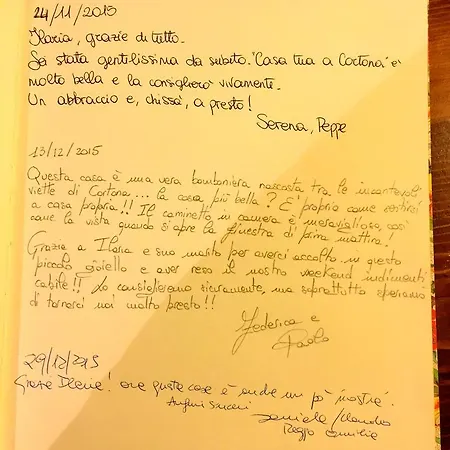 24/11/2015
Ilaria, grazie di tutto.
Sei stata gentilissima da subito. "Casa tua a Cortona" è
molto bella e la consiglierò vivamente.
Un abbraccio e, chissà, a presto!
Serena, Peppe
13/12/2015
Questa casa è una vera bomboniera nascosta tra le incantevoli
viette di Cortona... la cosa più bella? E' proprio come sentirsi
a casa propria!! Il caminetto in camera è meraviglioso, così
come la vista quando si apre la finestra di prima mattina!
Grazie a Ilaria e suo marito per averci accolto in questo
piccolo gioiello e aver reso il nostro weekend indimenti
cabile!! Lo consiglieremo sicuramente, ma soprattutto speriamo
di tornarci noi molto presto!!
Federica e
Paolo
29/12/2015
Grazie Ilaria! ora questa casa è anche un po' "nostra".
Auguri sinceri
Daniela / Claudio
Reggio Emilia